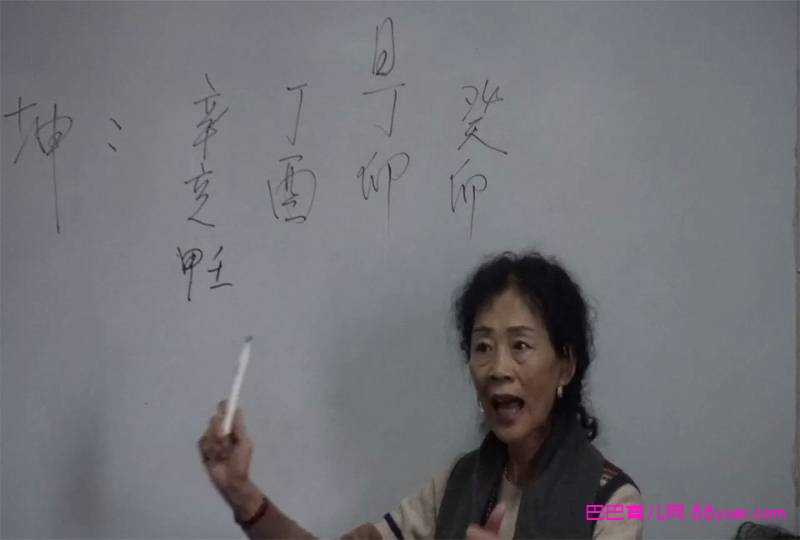 日
坤： 辛 丁 丁 癸
亥 酉 卯 卯
甲壬
巴巴育儿网 88yum.com